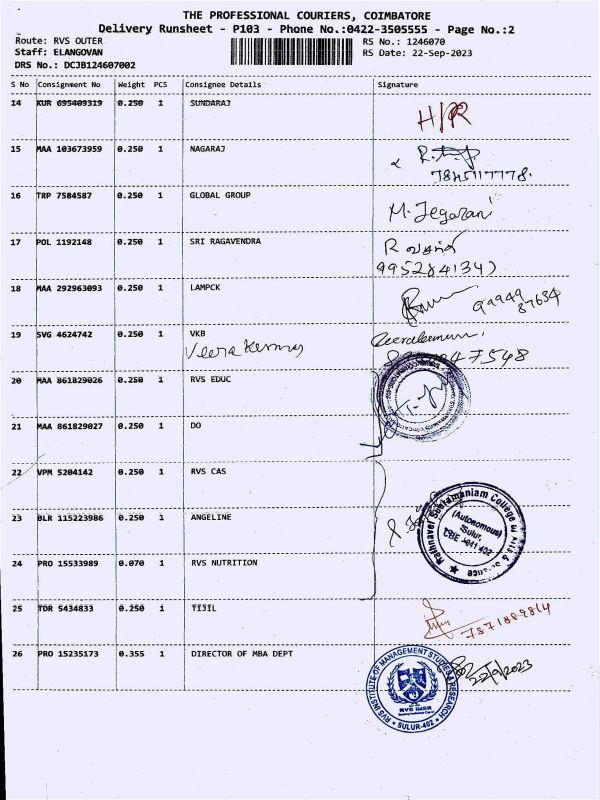 THE PROFESSIONAL COURIERS, COIMBATORE
Delivery Runsheet - P103 - Phone No.:0422-3505555 - Page No.:2
Route: RVS OUTER
RS No.: 1246070
Staff: ELANGOVAN
RS Date: 22-Sep-2023
DRS No.: DCJB124607002
S No Consignment No Weight PCS Consignee Details Signature
14 KUR 695409319 0.250 1 SUNDARAJ
15 MAA 103673959 0.250 1 NAGARAJ
7845117778.
16 TRP 7584587 0.250 1 GLOBAL GROUP
M. Jegarani
17 POL 1192148 0.250 1 SRI RAGAVENDRA
18 MAA 292963093 0.250 1 LAMPCK
19 SVG 4624742 0.250 1 VKB
Veerakumar
20 MAA 861829026 0.250 1 RVS EDUC
21 MAA 861829027 0.250 1 DO
22 VPM 5204142 0.250 1 RVS CAS
23 BLR 115223986 0.250 1 ANGELINE
(Autonomous)
Sulur,
CBE - 641 402
24 PRO 15533989 0.070 1 RVS NUTRITION
25 TOR 5434833 0.250 1 TIJIL
26 PRO 15235173 0.355 1 DIRECTOR OF MBA DEPT
22/9/2023
RVS INSTITUTE OF MANAGEMENT STUDIES & RESEARCH
RVS IMSR
SULUR-402